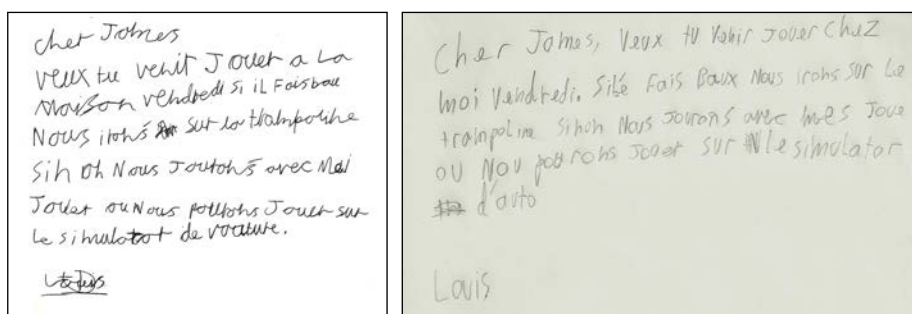 cher James
veux tu venir Jouer a La
maison vendredi si iL Faisbau
Nous irons sur la trampoline
sinon Nous Jourons avec
Jouer ou Nous pourrons Jouer sur
Le simulator de voature.
Cher James, Veux tu Venir Jouer Chez
moi Vendredi. Silé Fais Baux Nous irons sur Le
trampoline Sinon Nous Jourons avec mes Joue
ou Nou pourons Jouer sur Le simulator
d'auto
Louis